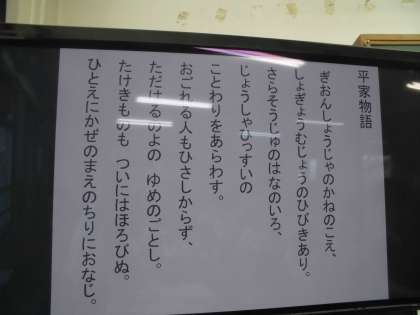 平家物語
ぎおんしょうじゃのかねのこえ、
しょぎょうむじょうのひびきあり。
さらそうじゅのはなのいろ、
じょうしゃひっすいの
ことわりをあらわす。
おごれる人もひさしからず、
ただはるのよの ゆめのごとし。
たけきものも ついにはほろびぬ。
ひとえにかぜのまえのちりにおなじ。